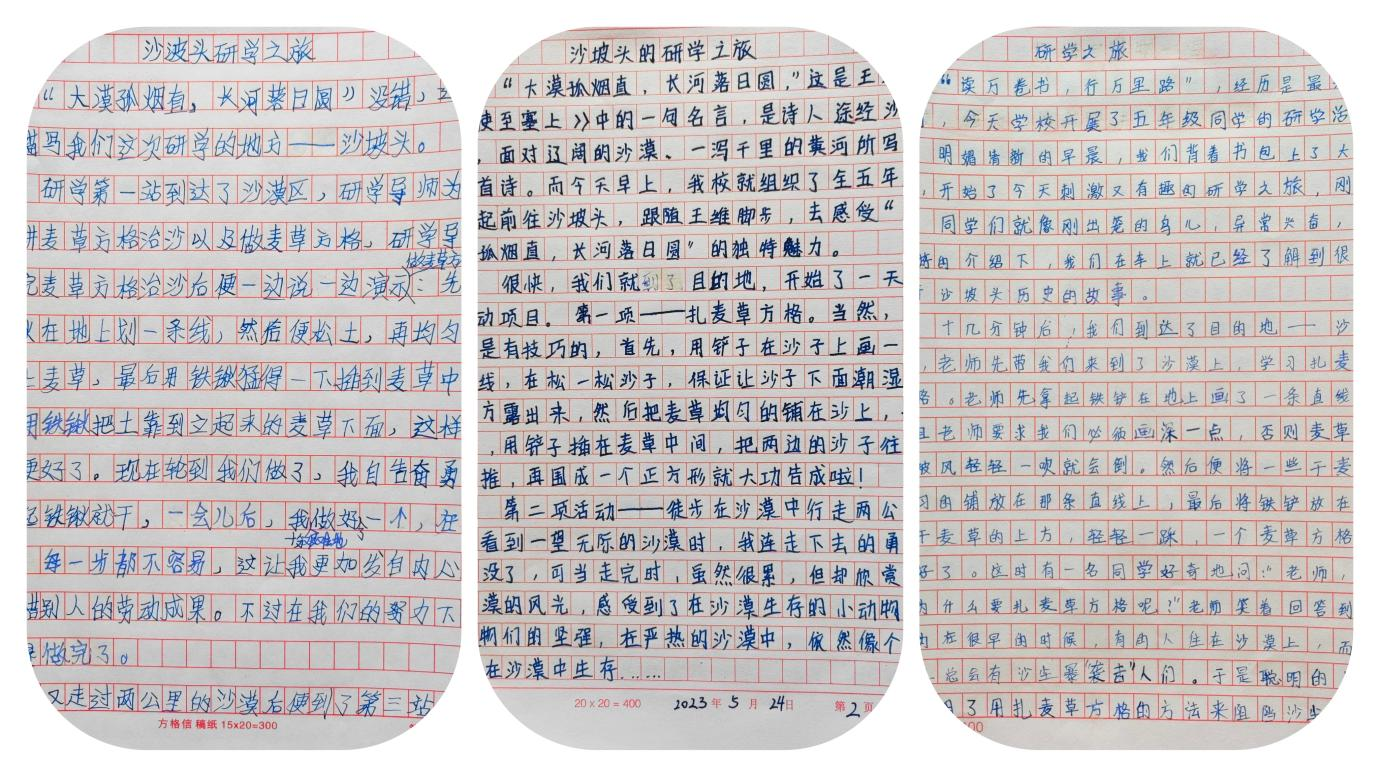 沙波头研学之旅
“大漠孤烟直，长河落日圆”没错，
描写我们这次研学的地方——沙坡头。
研学第一站到达了沙漠区，研学导师为
讲麦草方格治沙以及做麦草方格，研学导
做麦草方
完麦草方格治沙后便一边说一边演示：先
在地上划一条线，然后便松土，再均匀
上麦草，最后用铁锹猛得一下插到麦草中
用铁锹把土靠到立起来的麦草下面，这样
更好了。现在轮到我们做了，我自告奋勇
起铁锹就干，一会儿后，我做好一个，在
每一步都不容易，这让我更加发自内心
惜别人的劳动成果。不过在我们的努力下
做完了。
又走过两公里的沙漠后便到了第三站
方格信稿纸 15x20=300
沙坡头的研学之旅
“大漠孤烟直，长河落日圆，”这是王
使至塞上》中的一句名言，是诗人途经沙
，面对辽阔的沙漠、一泻千里的黄河所写
首诗。而今天早上，我校就组织了全五年
起前往沙坡头，跟随王维脚步，去感受“
孤烟直，长河落日圆”的独特魅力。
很快，我们就到了目的地，开始了一天
动项目。第一项——扎麦草方格。当然，
是有技巧的，首先，用铲子在沙子上画一
线，在松一松沙子，保证让沙子下面潮湿
方露出来，然后把麦草均匀的铺在沙上，
，用铲子插在麦草中间，把两边的沙子往
推，再围成一个正方形就大功告成啦！
第二项活动——徒步在沙漠中行走两公
看到一望无际的沙漠时，我连走下去的勇
没了，可当走完时，虽然很累，但却欣赏
漠的风光，感受到了在沙漠生存的小动物
物们的坚强，在严热的沙漠中，依然像个
在沙漠中生存……
20x20=400 2023年5月24日 第2页
研学之旅
“读万卷书，行万里路”，经历是最
，今天学校开展了五年级同学的研学活
明媚清新的早晨，我们背着书包上了大
，开始了今天刺激又有趣的研学之旅，刚
同学们就像刚出笼的鸟儿，异常兴奋，
的介绍下，我们在车上就已经了解到很
沙坡头历史的故事。
十几分钟后，我们到达了目的地——沙
，老师先带我们来到了沙漠上，学习扎麦
格。老师先拿起铁铲在地上画了一条直线
且老师要求我们必须画深一点，否则麦草
被风轻轻一吹就会倒。然后便将一些干麦
匀的铺放在那条直线上，最后将铁铲放在
干麦草的上方，轻轻一跺，一个麦草方格
好了。这时有一名同学好奇地问：“老师，
为什么要扎麦草方格呢？”老师笑着回答到
在很早的时候，有的人住在沙漠上，而
总会有沙尘暴“袭击”人们。于是聪明的
了用扎麦草方格的方法来阻挡沙尘
00